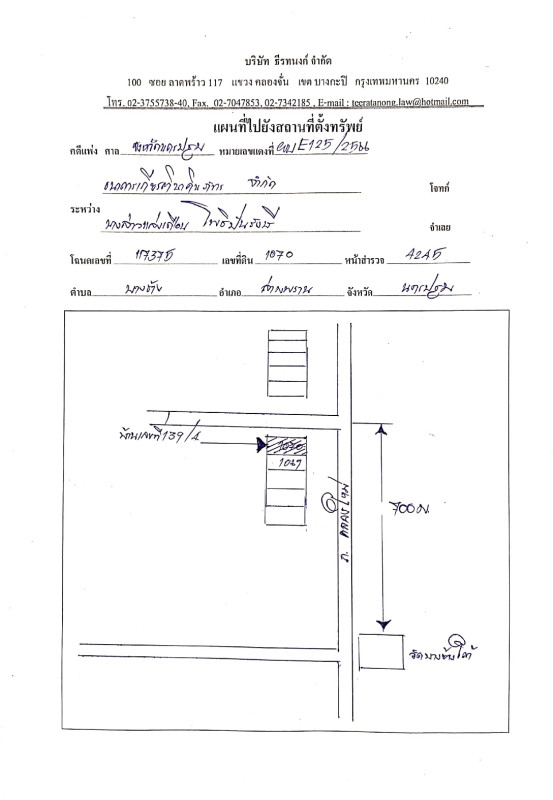 บริษัท ธีรทนงก์ จำกัด
100 ซอย ลาดพร้าว 117 แขวง คลองจั่น เขต บางกะปิ กรุงเทพมหานคร 10240
โทร. 02-3755738-40, Fax. 02-7047853, 02-7342185 , E-mail : teeratanong.law@hotmail.com
แผนที่ไปยังสถานที่ตั้งทรัพย์
คดีแพ่ง ศาล จังหวัดนครปฐม หมายเลขแดงที่ ผบE125/25
ธนาคารเกียรตินาคินภัทร จำกัด โจทก์
ระหว่าง
นางสาวแสงเดือน จำเลย
โฉนดเลขที่ 117375 เลขที่ดิน 1070 หน้าสำรวจ 4245
ตำบล บางช้าง อำเภอ สามพราน จังหวัด นครปฐม
บ้านเลขที่ 139/
1070
1069
ถ. คลองใหม่
700 ม
วัดบางช้างใต้